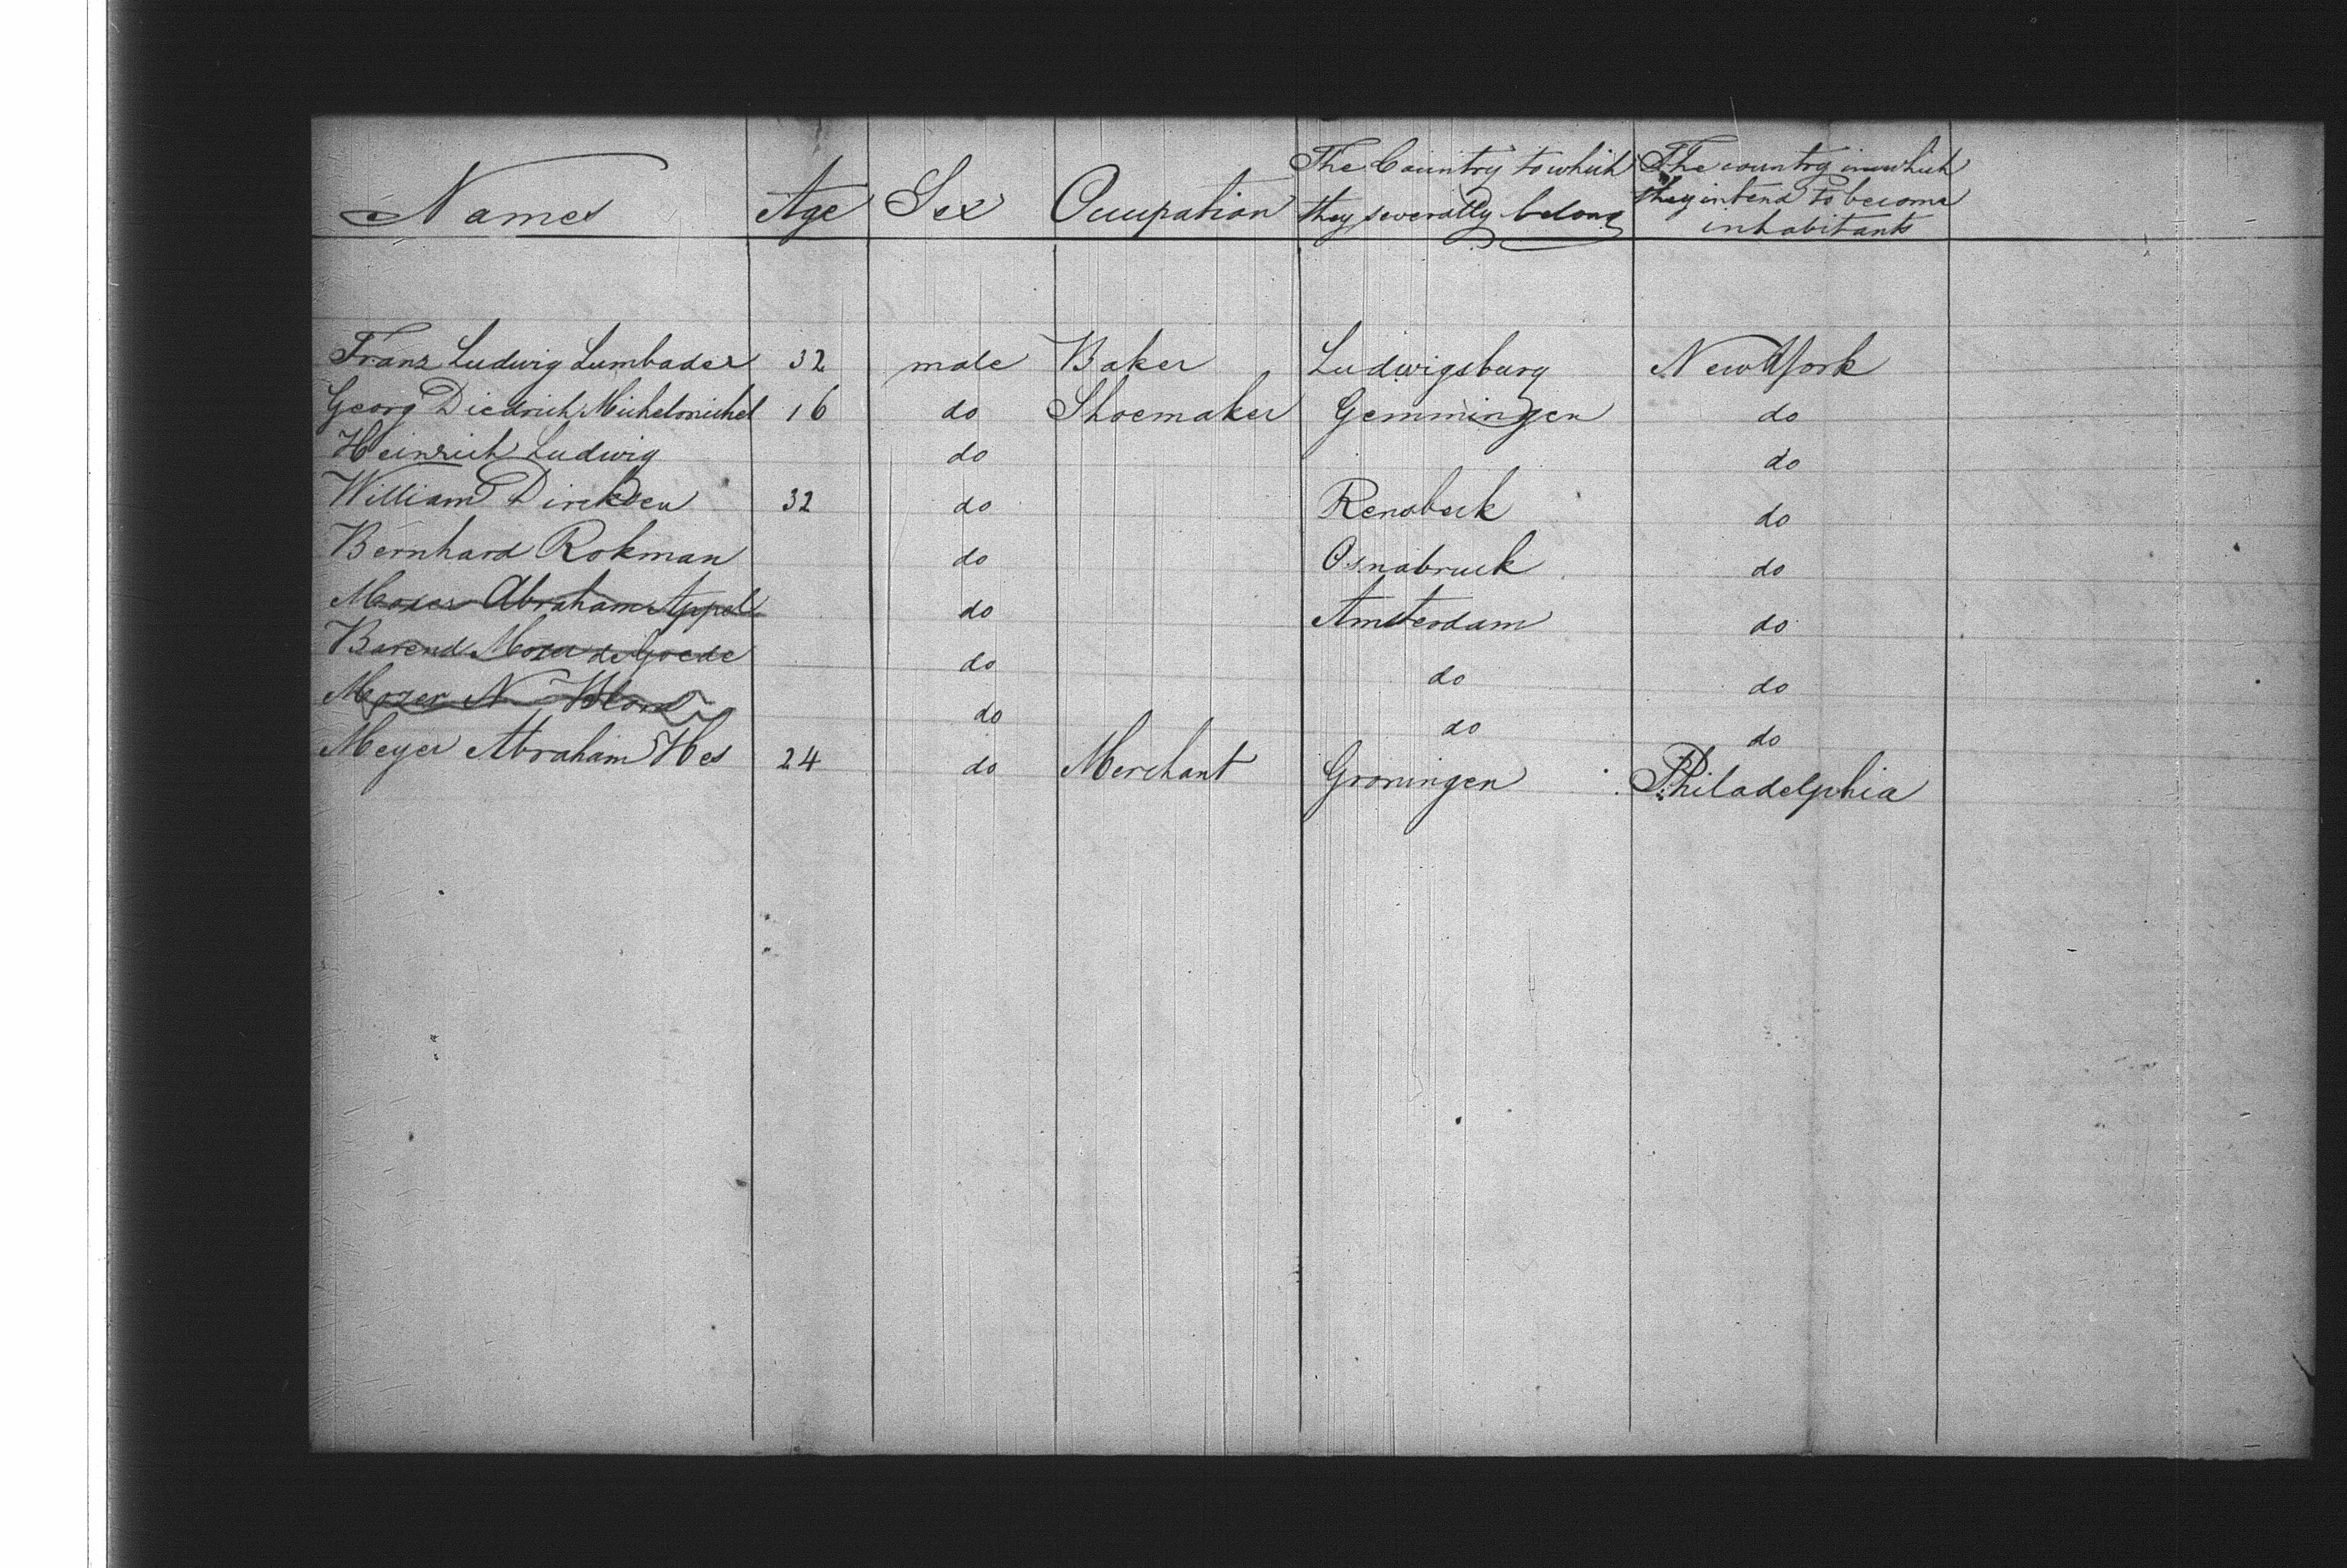 Names Age Sex Occupation The Country to which they severally belong The country in which they intend to become inhabitants
Franz Ludwig Lumbader 32 male Baker Ludwigsburg New York
Georg Diedrich Michelmichel 16 do Shoemaker Gemmingen do
Heinrich Ludwig do do
William Dircksen 32 do Rensbeck do
Bernhard Rokman do Osnabruck do
Mozes Abraham Appel do Amsterdam do
Barend Mozes de Goede do do do
Mozes N Blom do do do
Meyer Abraham Hes 24 do Merchant Groningen Philadelphia